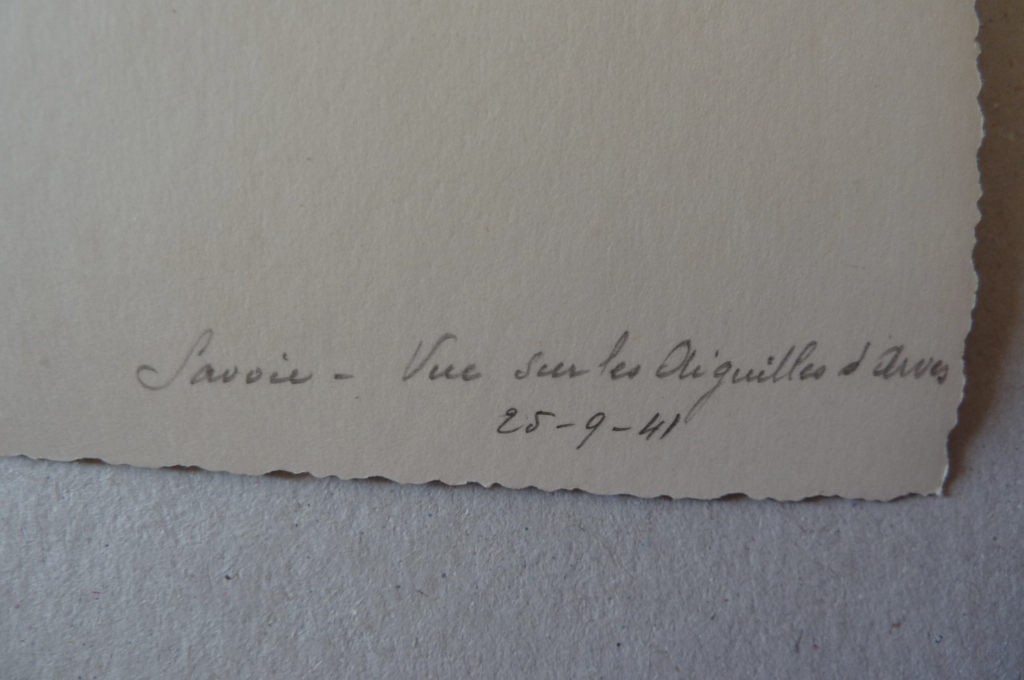 Savoie - Vue sur les Aiguilles d'Arves
25-9-41